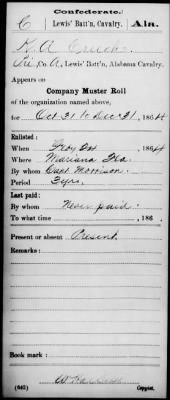 Confederate.
C Lewis' Batt'n, Cavalry. Ala.
K. A.
Pvt, Co. A, Lewis' Batt'n, Alabama Cavalry.
Appears on
Company Muster Roll
of the organization named above,
for Oct 31 to Dec 31, 1864
Enlisted:
When , 1864
Where Mariana Fla
By whom Capt Morrison
Period 3 yrs.
Last paid:
By whom Never paid
To what time , 186 .
Present or absent Present
Remarks:
Book mark:
(642) Copyist.